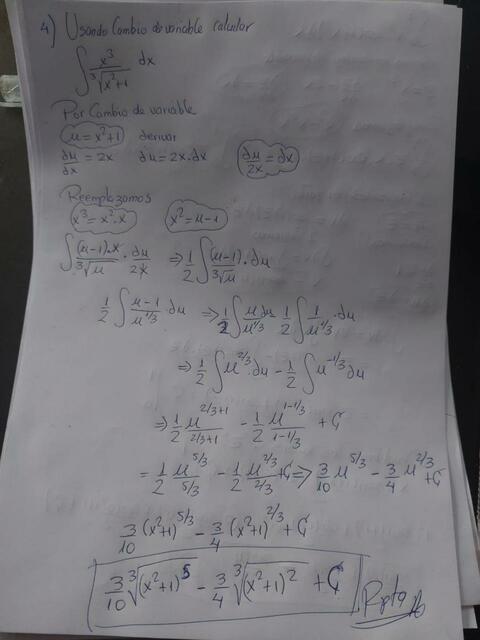 4) Usando Cambio de variable calcular
∫ x³/∛(x²+1) dx
Por Cambio de variable
u = x²+1 derivar
du/dx = 2x du = 2x·dx du/2x = dx
Reemplazamos
x³ = x²·x x² = u-1
∫ (u-1)·x/∛u · du/2x ⇒ 1/2 ∫ (u-1)/∛u · du
1/2 ∫ u-1/u^1/3 du ⇒ 1/2 ∫ u du/u^1/3 1/2 ∫ 1/u^1/3 · du
⇒ 1/2 ∫ u^2/3 · du - 1/2 ∫ u^-1/3 du
⇒ 1/2 u^2/3+1/2/3+1 - 1/2 u^1-1/3/1-1/3 + C
= 1/2 u^5/3/5/3 - 1/2 u^2/3/2/3 + C ⇒ 3/10 u^5/3 - 3/4 u^2/3 + C
3/10 (x²+1)^5/3 - 3/4 (x²+1)^2/3 + C
3/10 ∛(x²+1)^5 - 3/4 ∛(x²+1)^2 + C Rpta